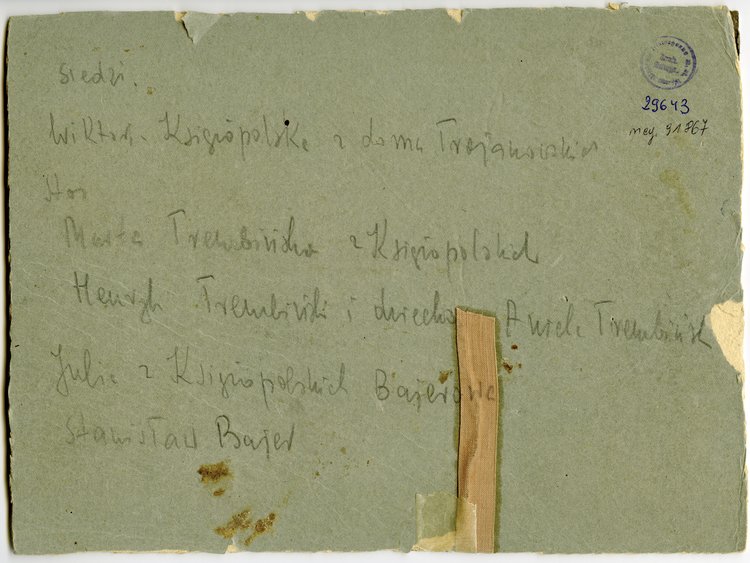 siedzi.
29643
neg. 91867
Wiktor. Księżopolska z domu Trojanowskich
Marta Trembińska z Księżopolskich
Henryk Trembiński i dziecko Aniela Trembińsk
Julia z Księżopolskich Bajerowa
Stanisław Bajer